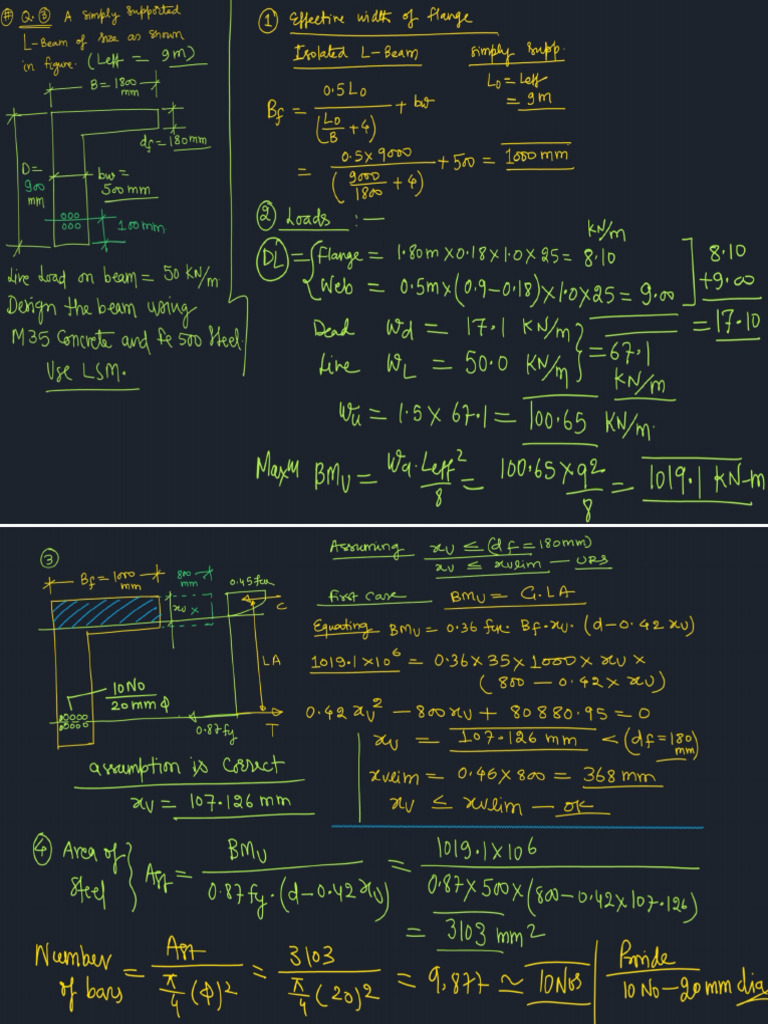 # Q.③ A simply supported
L-Beam of size as shown
in figure. (Leff = 9m)
B = 1800 mm
df = 180mm
D = 900 mm
bw = 500 mm
100mm
Live Load on beam = 50 KN/m
Design the beam using
M35 Concrete and fe 500 Steel.
Use LSM.
① Effective width of flange
Isolated L-Beam
simply supp.
L0 = Leff
= 9m
Bf = 0.5L0 / (L0/B + 4) + bw
= 0.5x9000 / (9000/1800 + 4) + 500 = 1000 mm
② Loads :—
KN/m
DL = { Flange = 1.80m x 0.18 x 1.0 x 25 = 8.10
Web = 0.5m x (0.9-0.18) x 1.0 x 25 = 9.00
8.10
+9.00
= 17.10
Dead Wd = 17.1 KN/m
Live WL = 50.0 KN/m
= 67.1 KN/m
Wu = 1.5 x 67.1 = 100.65 KN/m.
Maxm BMu = Wu.Leff²/8 = 100.65x9²/8 = 1019.1 KN-m
③
Bf = 1000 mm
800 mm
0.45fck
xu
C
LA
10No
20mm ϕ
0.87fy
T
assumption is correct
xu = 107.126 mm
Assuming xu ≤ (df = 180mm)
xu ≤ xulim — URS
first case BMu = C.LA
Equating BMu = 0.36 fck. Bf.xu. (d-0.42xu)
1019.1x10⁶ = 0.36x35x1000 x xu x
(800 - 0.42 x xu)
0.42xu² - 800xu + 80880.95 = 0
xu = 107.126 mm < (df = 180 mm)
xulim = 0.46x800 = 368 mm
xu ≤ xulim — OK
④ Area of Steel } Ast = BMu / 0.87fy.(d-0.42xu) = 1019.1x10⁶ / 0.87x500x(800-0.42x107.126)
= 3103 mm²
Number of bars = Ast / π/4 (ϕ)² = 3103 / π/4 (20)² = 9.877 ≃ 10Nos
Provide
10No-20mm dia